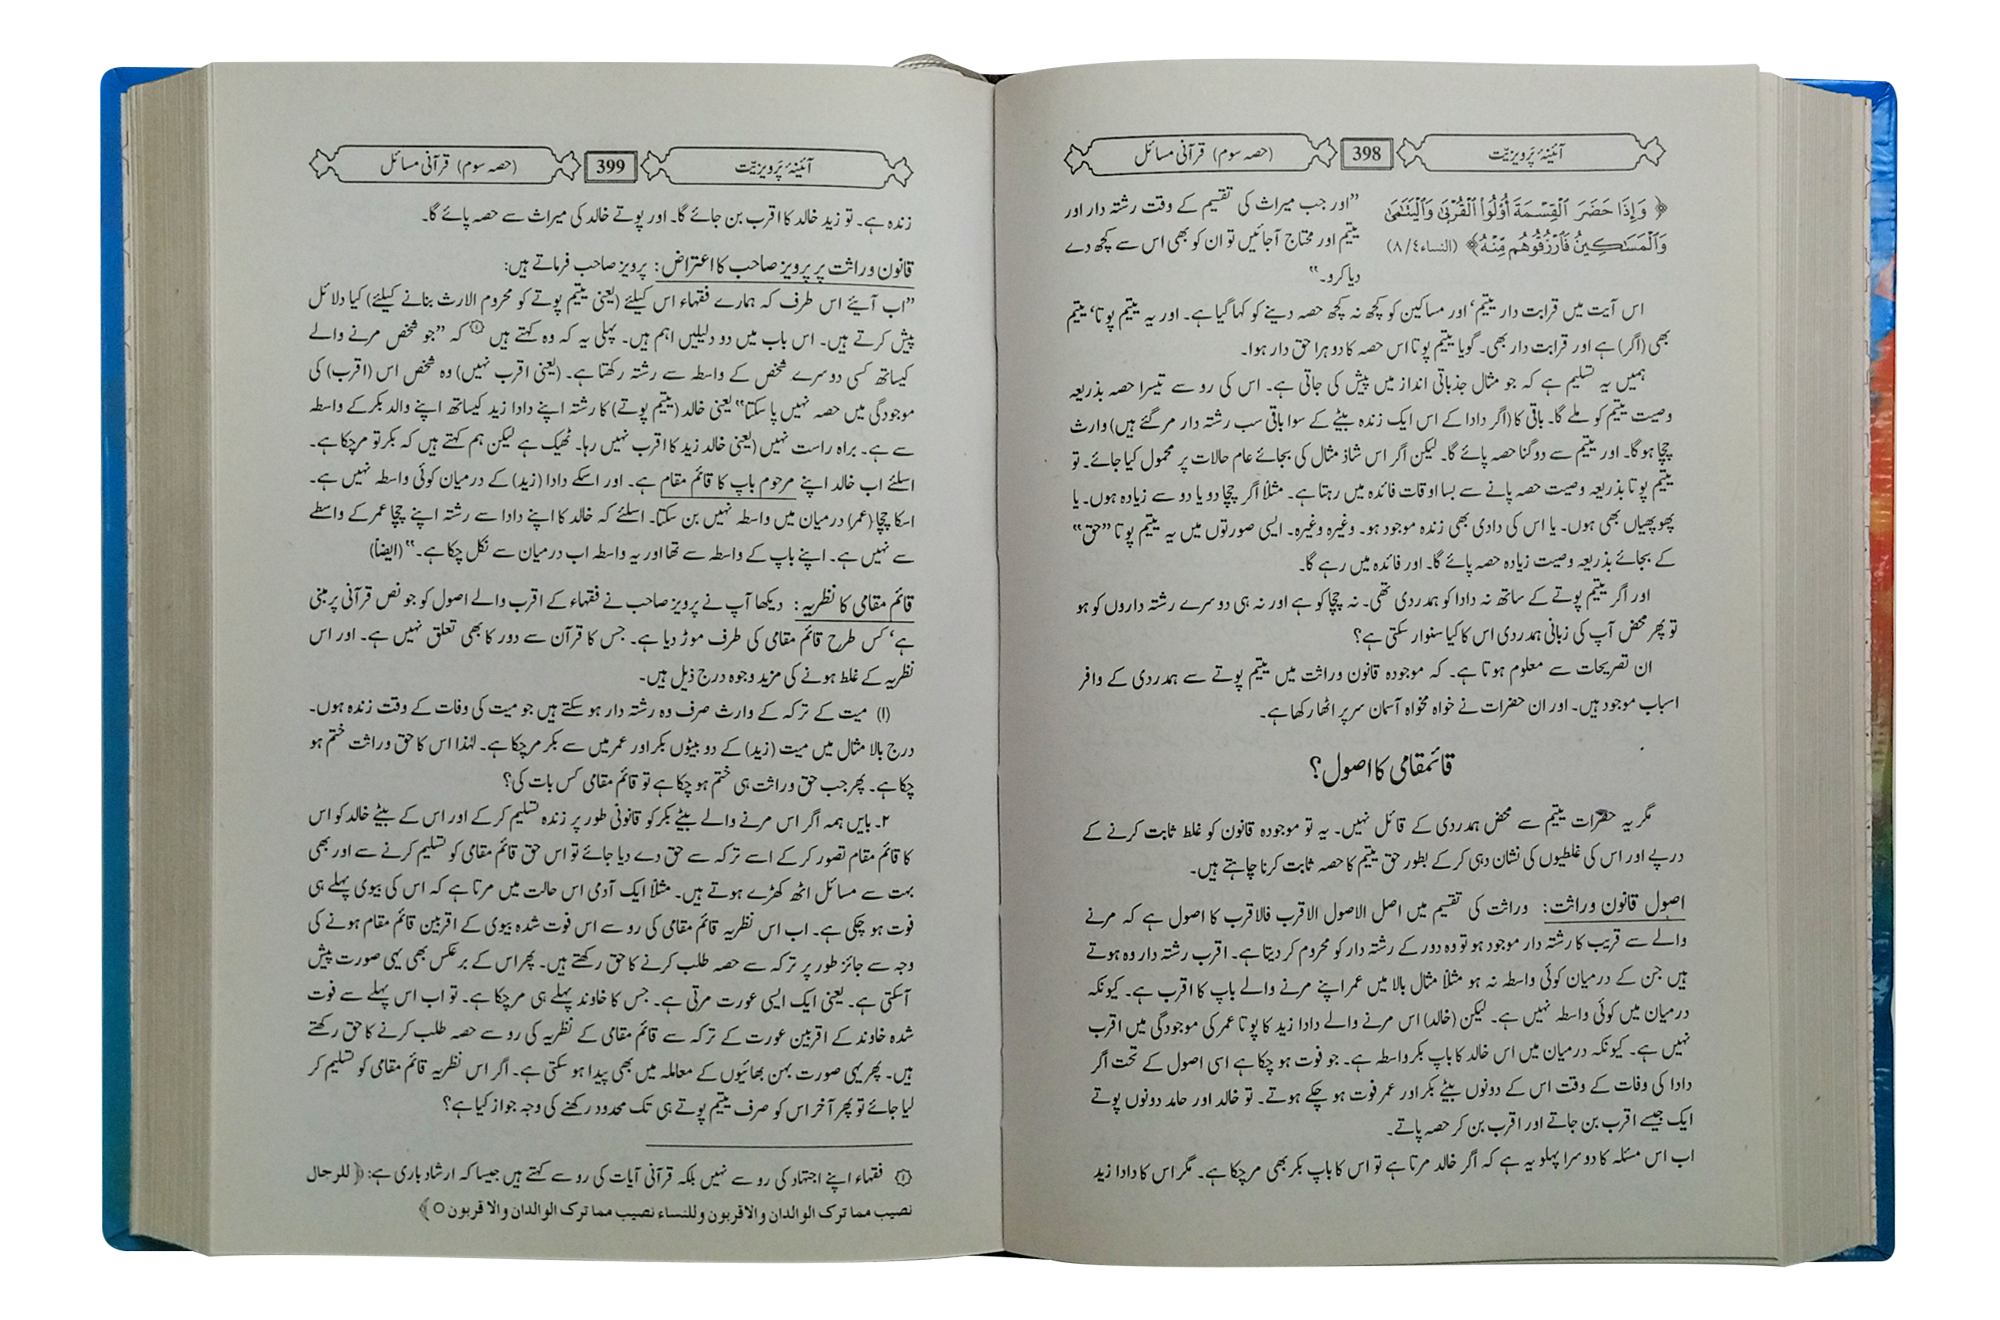 آئینۂ پَرویزیّت 398 (حصہ سوم) قرآنی مسائل
﴿ وَإِذَا حَضَرَ ٱلْقِسْمَةَ أُو۟لُوا۟ ٱلْقُرْبَىٰ وَٱلْيَتَـٰمَىٰ
وَٱلْمَسَـٰكِينُ فَٱرْزُقُوهُم مِّنْهُ﴾ (النساء٤/٨)
”اور جب میراث کی تقسیم کے وقت رشتہ دار اور
یتیم اور محتاج آجائیں تو ان کو بھی اس سے کچھ دے
دیا کرو۔“
اس آیت میں قرابت دار یتیم‘ اور مساکین کو کچھ نہ کچھ حصہ دینے کو کہا گیا ہے۔ اور یہ یتیم پوتا‘ یتیم
بھی (اگر) ہے اور قرابت دار بھی۔ گویا یتیم پوتا اس حصہ کا دوہرا حق دار ہوا۔
ہمیں یہ تسلیم ہے کہ جو مثال جذباتی انداز میں پیش کی جاتی ہے۔ اس کی رو سے تیسرا حصہ بذریعہ
وصیت یتیم کو ملے گا۔ باقی کا (اگر دادا کے اس ایک زندہ بیٹے کے سوا باقی سب رشتہ دار مرگئے ہیں) وارث
چچا ہو گا۔ اور یتیم سے دو گنا حصہ پائے گا۔ لیکن اگر اس شاذ مثال کی بجائے عام حالات پر محمول کیا جائے۔ تو
یتیم پوتا بذریعہ وصیت حصہ پانے سے بسا اوقات فائدہ میں رہتا ہے۔ مثلاً اگر چچا دو یا دو سے زیادہ ہوں۔ یا
پھوپھیاں بھی ہوں۔ یا اس کی دادی بھی زندہ موجود ہو۔ وغیرہ وغیرہ۔ ایسی صورتوں میں یہ یتیم پوتا ”حق“
کے بجائے بذریعہ وصیت زیادہ حصہ پائے گا۔ اور فائدہ میں رہے گا۔
اور اگر یتیم پوتے کے ساتھ نہ دادا کو ہمدردی تھی۔ نہ چچا کو ہے اور نہ ہی دوسرے رشتہ داروں کو ہو
تو پھر محض آپ کی زبانی ہمدردی اس کا کیا سنوار سکتی ہے؟
ان تصریحات سے معلوم ہوتا ہے۔ کہ موجودہ قانون وراثت میں یتیم پوتے سے ہمدردی کے وافر
اسباب موجود ہیں۔ اور ان حضرات نے خواہ مخواہ آسمان سر پر اٹھا رکھا ہے۔
قائمقامی کا اصول؟
مگر یہ حضرات یتیم سے محض ہمدردی کے قائل نہیں۔ یہ تو موجودہ قانون کو غلط ثابت کرنے کے
درپے اور اس کی غلطیوں کی نشان دہی کرکے بطور حق یتیم کا حصہ ثابت کرنا چاہتے ہیں۔
اصول قانون وراثت: وراثت کی تقسیم میں اصل الاصول الاقرب فالاقرب کا اصول ہے کہ مرنے
والے سے قریب کا رشتہ دار موجود ہو تو وہ دور کے رشتہ دار کو محروم کر دیتا ہے۔ اقرب رشتہ دار وہ ہوتے
ہیں جن کے درمیان کوئی واسطہ نہ ہو مثلاً مثال بالا میں عمر اپنے مرنے والے باپ کا اقرب ہے۔ کیونکہ
درمیان میں کوئی واسطہ نہیں ہے۔ لیکن (خالد) اس مرنے والے دادا زید کا پوتا عمر کی موجودگی میں اقرب
نہیں ہے۔ کیونکہ درمیان میں اس خالد کا باپ بکر واسطہ ہے۔ جو فوت ہو چکا ہے اسی اصول کے تحت اگر
دادا کی وفات کے وقت اس کے دونوں بیٹے بکر اور عمر فوت ہو چکے ہوتے۔ تو خالد اور حامد دونوں پوتے
ایک جیسے اقرب بن جاتے اور اقرب بن کر حصہ پاتے۔
اب اس مسئلہ کا دوسرا پہلو یہ ہے کہ اگر خالد مرتا ہے تو اس کا باپ بکر بھی مرچکا ہے۔ مگر اس کا دادا زید
آئینۂ پَرویزیّت 399 (حصہ سوم) قرآنی مسائل
زندہ ہے۔ تو زید خالد کا اقرب بن جائے گا۔ اور پوتے خالد کی میراث سے حصہ پائے گا۔
قانون وراثت پر پرویز صاحب کا اعتراض: پرویز صاحب فرماتے ہیں:
”اب آیئے اس طرف کہ ہمارے فقہاء اس کیلئے (یعنی یتیم پوتے کو محروم الارث بنانے کیلئے) کیا دلائل
پیش کرتے ہیں۔ اس باب میں دو دلیلیں اہم ہیں۔ پہلی یہ کہ وہ کہتے ہیں ۞ کہ ”جو شخص مرنے والے
کیساتھ کسی دوسرے شخص کے واسطہ سے رشتہ رکھتا ہے۔ (یعنی اقرب نہیں) وہ شخص اس (اقرب) کی
موجودگی میں حصہ نہیں پا سکتا“ یعنی خالد (یتیم پوتے) کا رشتہ اپنے دادا زید کیساتھ اپنے والد بکر کے واسطہ
سے ہے۔ براہ راست نہیں (یعنی خالد زید کا اقرب نہیں رہا۔ ٹھیک ہے لیکن ہم کہتے ہیں کہ بکر تو مرچکا ہے۔
اسلئے اب خالد اپنے مرحوم باپ کا قائم مقام ہے۔ اور اسکے دادا (زید) کے درمیان کوئی واسطہ نہیں ہے۔
اسکا چچا (عمر) درمیان میں واسطہ نہیں بن سکتا۔ اسلئے کہ خالد کا اپنے دادا سے رشتہ اپنے چچا عمر کے واسطے
سے نہیں ہے۔ اپنے باپ کے واسطہ سے تھا اور یہ واسطہ اب درمیان سے نکل چکا ہے۔“ (ایضاً)
قائم مقامی کا نظریہ: دیکھا آپ نے پرویز صاحب نے فقہاء کے اقرب والے اصول کو جو نص قرآنی پر مبنی
ہے‘ کس طرح قائم مقامی کی طرف موڑ دیا ہے۔ جس کا قرآن سے دور کا بھی تعلق نہیں ہے۔ اور اس
نظریہ کے غلط ہونے کی مزید وجوہ درج ذیل ہیں۔
(۱) میت کے ترکہ کے وارث صرف وہ رشتہ دار ہو سکتے ہیں جو میت کی وفات کے وقت زندہ ہوں۔
درج بالا مثال میں میت (زید) کے دو بیٹوں بکر اور عمر میں سے بکر مرچکا ہے۔ لہٰذا اس کا حق وراثت ختم ہو
چکا ہے۔ پھر جب حق وراثت ہی ختم ہو چکا ہے تو قائم مقامی کس بات کی؟
۲۔ بایں ہمہ اگر اس مرنے والے بیٹے بکر کو قانونی طور پر زندہ تسلیم کرکے اور اس کے بیٹے خالد کو اس
کا قائم مقام تصور کرکے اسے ترکہ سے حق دے دیا جائے تو اس حق قائم مقامی کو تسلیم کرنے سے اور بھی
بہت سے مسائل اٹھ کھڑے ہوتے ہیں۔ مثلاً ایک آدمی اس حالت میں مرتا ہے کہ اس کی بیوی پہلے ہی
فوت ہو چکی ہے۔ اب اس نظریہ قائم مقامی کی رو سے اس فوت شدہ بیوی کے اقربین قائم مقام ہونے کی
وجہ سے جائز طور پر ترکہ سے حصہ طلب کرنے کا حق رکھتے ہیں۔ پھر اس کے برعکس بھی یہی صورت پیش
آسکتی ہے۔ یعنی ایک ایسی عورت مرتی ہے۔ جس کا خاوند پہلے ہی مرچکا ہے۔ تو اب اس پہلے سے فوت
شدہ خاوند کے اقربین عورت کے ترکہ سے قائم مقامی کے نظریہ کی رو سے حصہ طلب کرنے کا حق رکھتے
ہیں۔ پھر یہی صورت بہن بھائیوں کے معاملہ میں بھی پیدا ہو سکتی ہے۔ اگر اس نظریہ قائم مقامی کو تسلیم کر
لیا جائے تو پھر آخر اس کو صرف یتیم پوتے ہی تک محدود رکھنے کی وجہ جواز کیا ہے؟
۞ فقہاء اپنے اجتہاد کی رو سے نہیں بلکہ قرآنی آیات کی رو سے کہتے ہیں جیسا کہ ارشاد باری ہے: ﴿للرجال
نصیب مما ترک الوالدان والاقربون وللنساء نصیب مما ترک الوالدان والاقربون ○﴾